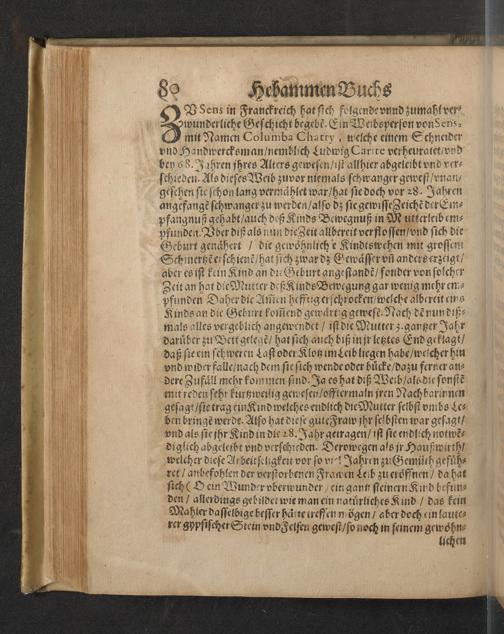 80 Hebammen Buchs
ZV Sens in Franckreich hat sich folgende vnnd zumahl ver-
wunderliche Geschicht begebē. Ein Weibsperson von Sens-
mit Namen Columba Chatry, welche einem Schneider
vnd Handwercksman/nemblich Ludwig Carite verheuratet/vnd
bey 68. Jahren jhres Alters gewesen/ist allhier abgeleibt vnd ver-
schieden. Als dieses Weib zuvor niemals schwanger gewest/vnan-
gesehen sie schon lang vermählet war/hat sie doch vor 28. Jahren
angefangē schwanger zu werden/also dz sie gewisse Zeichē der Em-
pfangnuß gehabt/auch deß Kinds Bewegnuß in Mutterleib em-
pfunden. Vber diß als nun die Zeit allbereit verflossen/vnd sich die
Geburt genähert / die gewöhnliche Kindtswehen mit grossem
Schmertzē erschienē/hat sich zwar dz Gewässer vñ anders erzeigt/
aber es ist kein Kind an die Geburt angestandē/sonder von solcher
Zeit an hat die Mutter deß Kinds Bewegung gar wenig mehr em-
pfunden. Daher die Am̃en hefftig erschrocken/welche albereit eins
Kinds an die Geburt kom̃end gewärtig gewest. Nach dē nun diß-
mals alles vergeblich angewendet / ist die Mutter 3. gantzer Jahr
darüber zu Bett gelegē/ hat sich auch biß in jr letztes End geklagt/
daß sie ein schweren Last oder Klotz im Leib liegen habe/welcher hin
vnd wider falle/nach dem sie sich wende oder bücke/dazu ferner an-
dere Zufäll mehr kommen sind. Ja es hat diß Weib/als die sonstē
mit reden sehr kurtzweilig gewesen/offtermaln jren Nachbarinnen
gesagt/sie trag ein Kind welches endlich die Mutter selbst vmbs Le-
ben bringē werde. Also hat diese gute Fraw jhr selbsten war gesagt/
vnd als sie jhr Kind in die 28. Jahr getragen/ ist sie endlich notwē-
diglich abgeleibt vnd verschieden. Derowegen als jr Haußwirth/
welcher diese Arbeitseligkeit vor so viel Jahren zu Gemüth gefüh-
ret / anbefohlen der verstorbenen Frawen Leib zu eröffnen / da hat
sich (O ein Wunder vber wunder) ein gantz steinern Kind befun-
den / allerdings gebildet wie man ein natürliches Kind / das kein
Mahler dasselbige besser hätte treffen mögen / aber doch ein laute-
rer gypsischer Stein vnd Felsen gewest/so noch in seinem gewöhn-
lichen